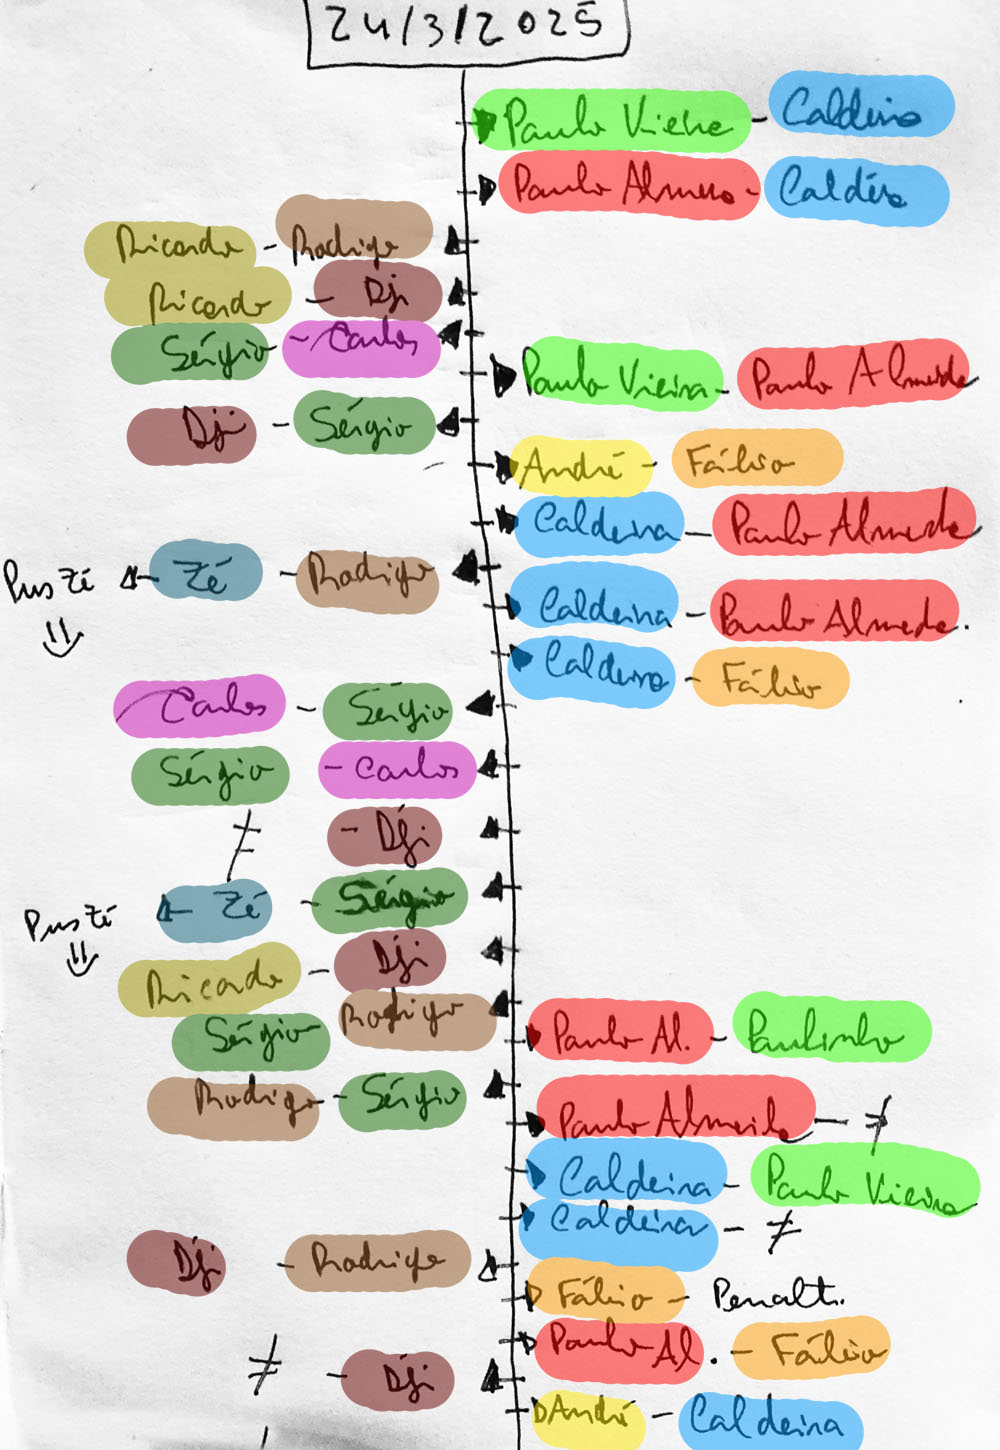 24/3/2025
Paulo Vieira - Caldeira
Paulo Almeida - Caldeira
Ricardo - Rodrigo
Ricardo - Dji
Sérgio - Carlos
Paulo Vieira - Paulo Almeida
Dji - Sérgio
André - Fábio
Caldeira - Paulo Almeida
Pus Zé ← Zé - Rodrigo
Caldeira - Paulo Almeida.
Caldeira - Fábio
Carlos - Sérgio
Sérgio - Carlos
≠ - Dji
Pus Zé ← Zé - Sérgio
Ricardo - Dji
Sérgio Rodrigo
Paulo Al. - Paulinho
Rodrigo - Sérgio
Paulo Almeida - ≠
Caldeira - Paulo Vieira
Caldeira - ≠
Dji - Rodrigo
Fábio - Penalti.
Paulo Al. - Fábio
≠ - Dji
André - Caldeira